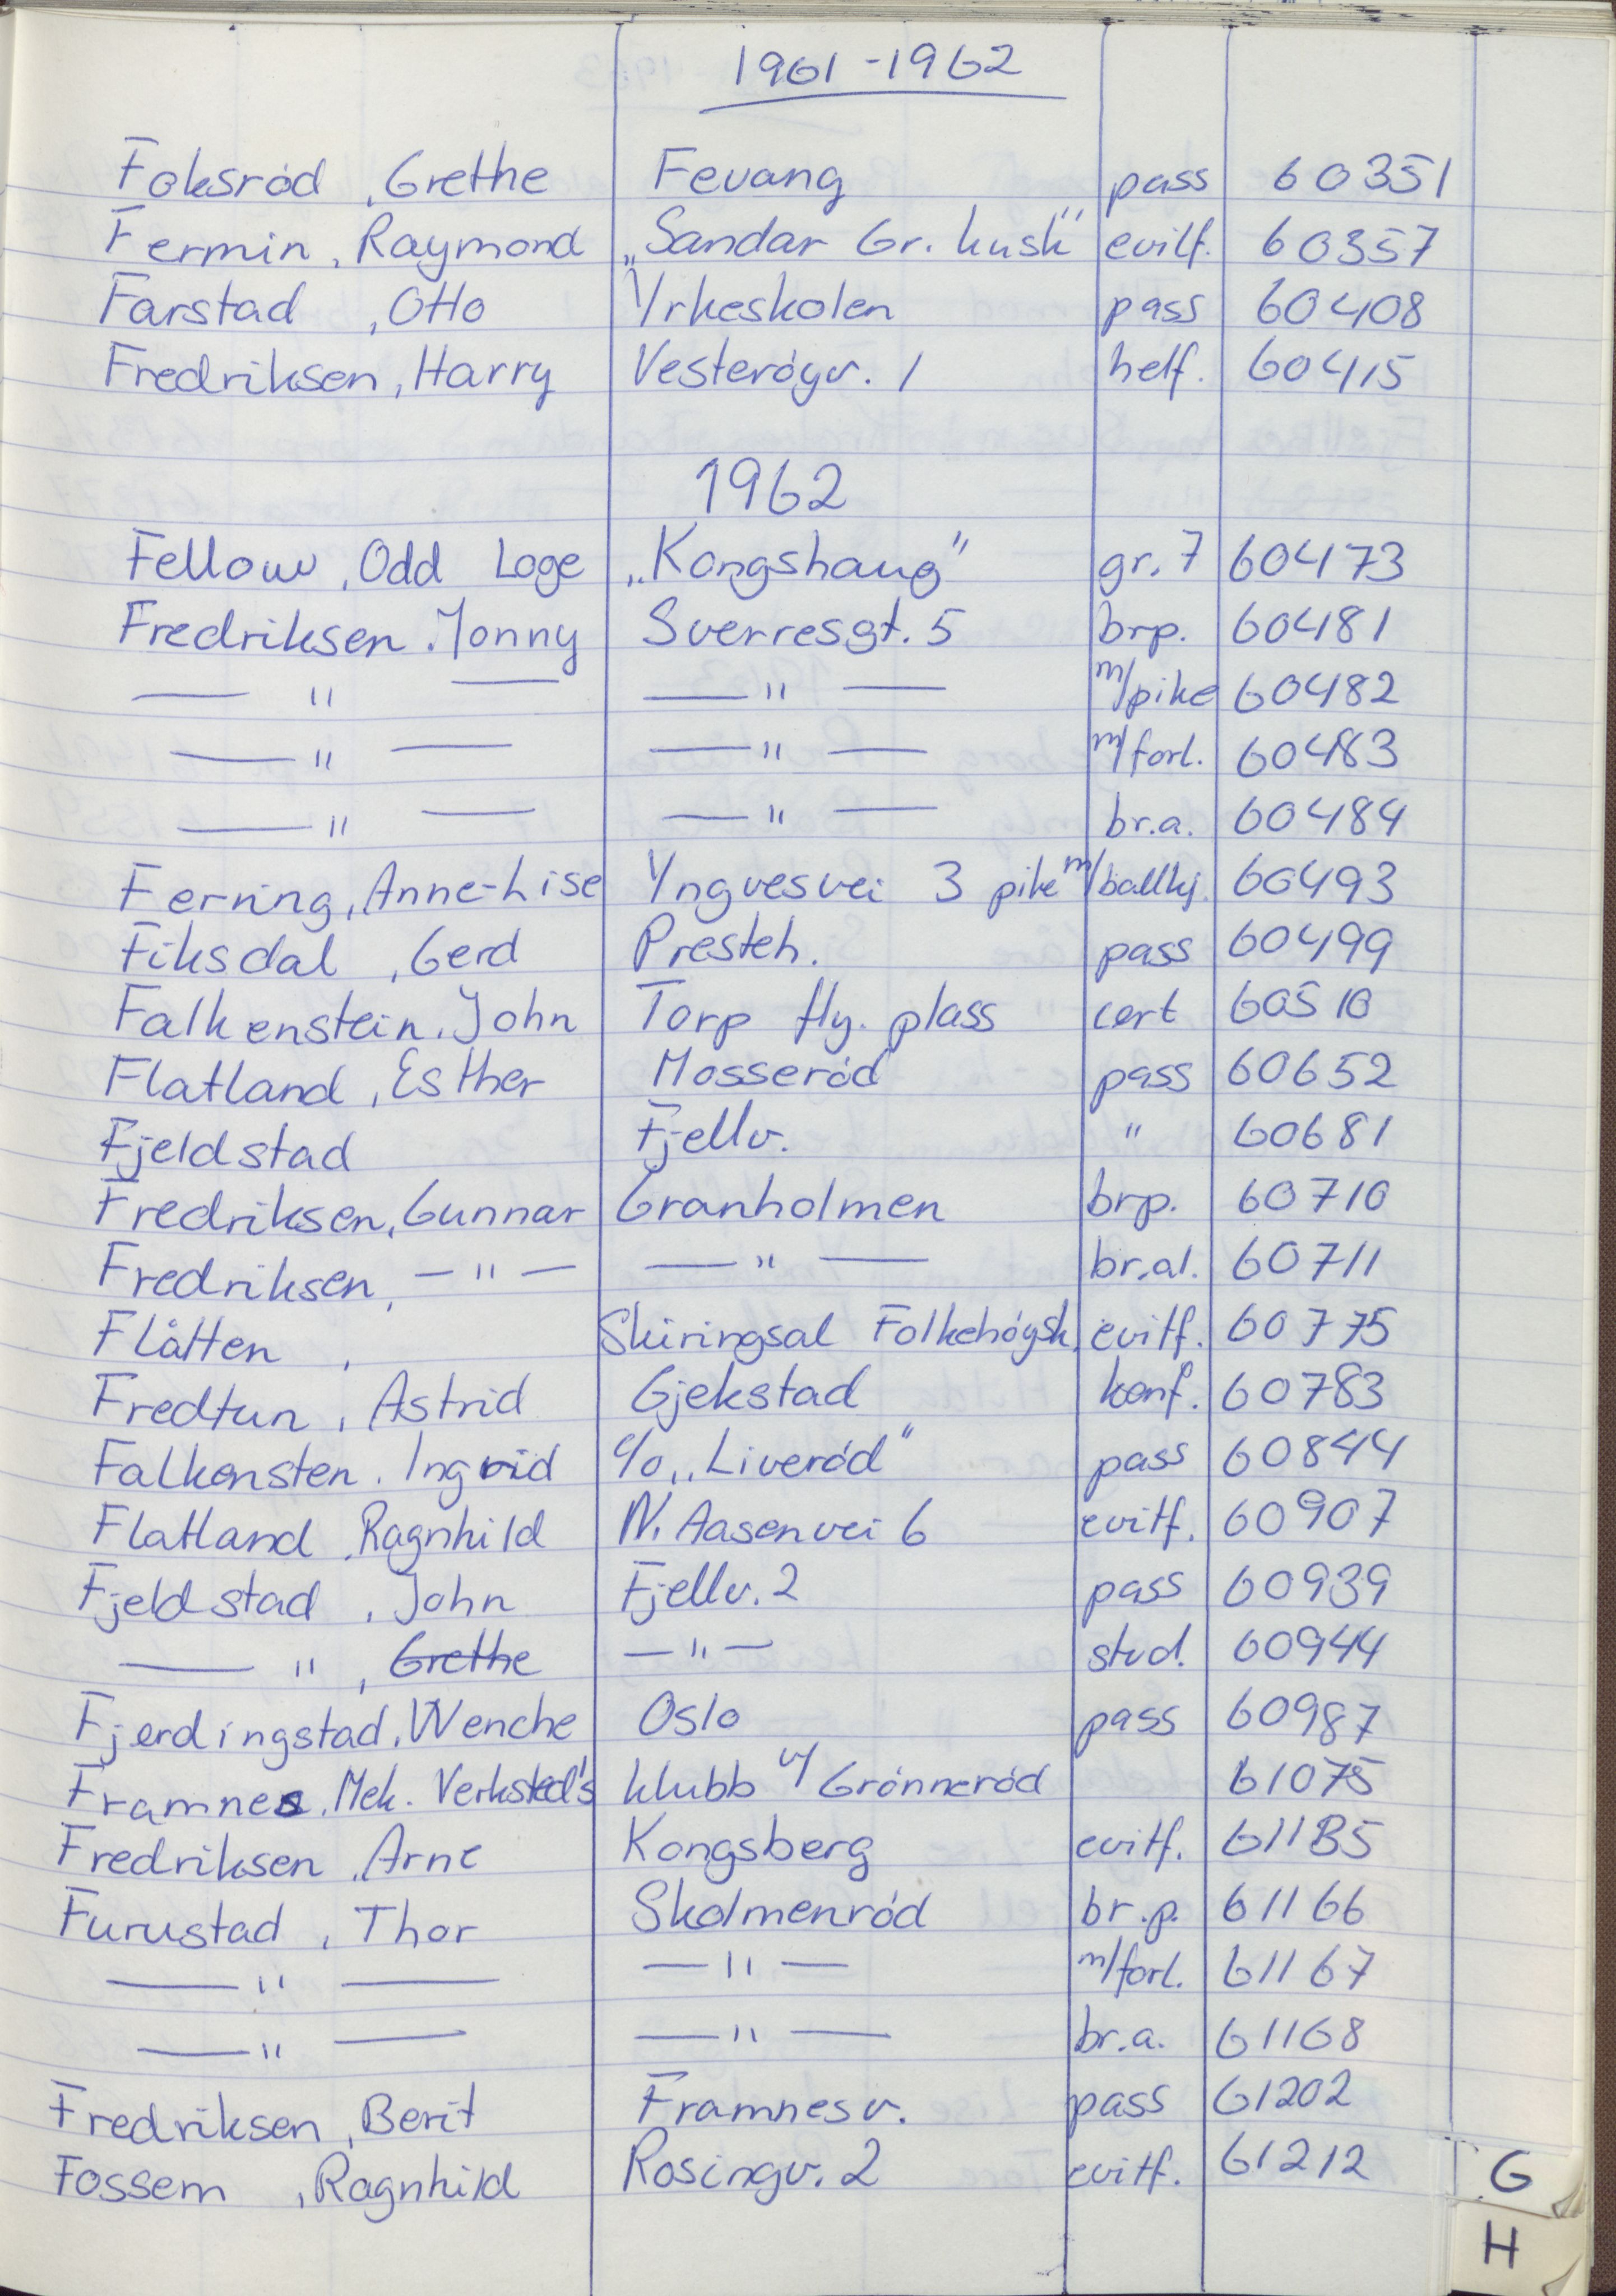 1961-1962
Foksród, Grethe Fevang pass 60351
Fermin, Raymond „Sandar Gr. kusk" evilf. 60357
Farstad, Otto Yrkeskolen pass 60408
Fredriksen, Harry Vesteróyv. 1 helf. 60415
1962
Fellow, Odd Loge „Kongshaug" gr. 7 60473
Fredriksen. Jonny Sverresgt. 5 brp. 60481
— " — — " — m/pike 60482
— " — — " — m/forl. 60483
— " — — " — br.a. 60484
Ferning, Anne-Lise Yngvesvei 3 pike m/ballkj. 60493
Fiksdal, Gerd Presteh. pass 60499
Falkenstein. John Torp fly. plass cert 60510
Flatland, Esther Mosseród pass 60652
Fjeldstad Fjellv. " 60681
Fredriksen, Gunnar Granholmen brp. 60710
Fredriksen, — " — — " — br.al. 60711
Flåtten, Skiringsal Folkehóysk. evitf. 60775
Fredtun, Astrid Gjekstad konf. 60783
Falkensten. Ingrid c/o „Liveród" pass 60844
Flatland, Ragnhild N. Aasenvei 6 evitf. 60907
Fjeldstad, John Fjellv. 2 pass 60939
— ", Grethe — " — stud. 60944
Fjerdingstad, Wenche Oslo pass 60987
Framnes. Mek. Verksted's klubb v/ Grónneród 61075
Fredriksen, Arne Kongsberg evitf.
Furustad, Thor Skolmenród br.p. 61166
— " — — " — m/forl. 61167
— " — — " — br.a. 61168
Fredriksen, Berit Framnesv. pass 61202
Fossem, Ragnhild Rosingv. 2 evitf. 61212
G
H